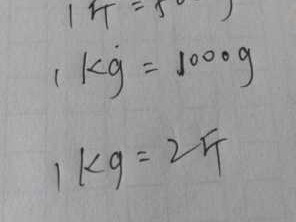 1斤=500g
1 Kg = 1000g
1 Kg = 2斤